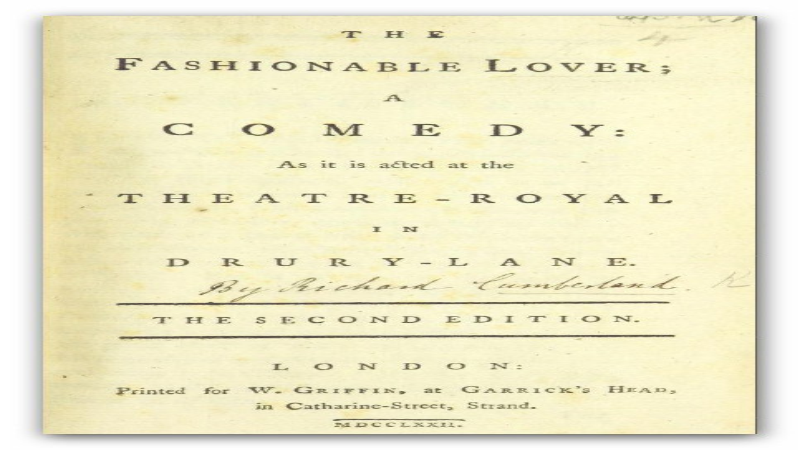 THE
FASHIONABLE LOVER;
A
COMEDY:
As it is acted at the
THEATRE-ROYAL
IN
DRURY-LANE.
By Richard Cumberland.
THE SECOND EDITION.
LONDON:
Printed for W. GRIFFIN, at GARRICK'S HEAD,
in Catharine-Street, Strand.
MDCCLXXII.